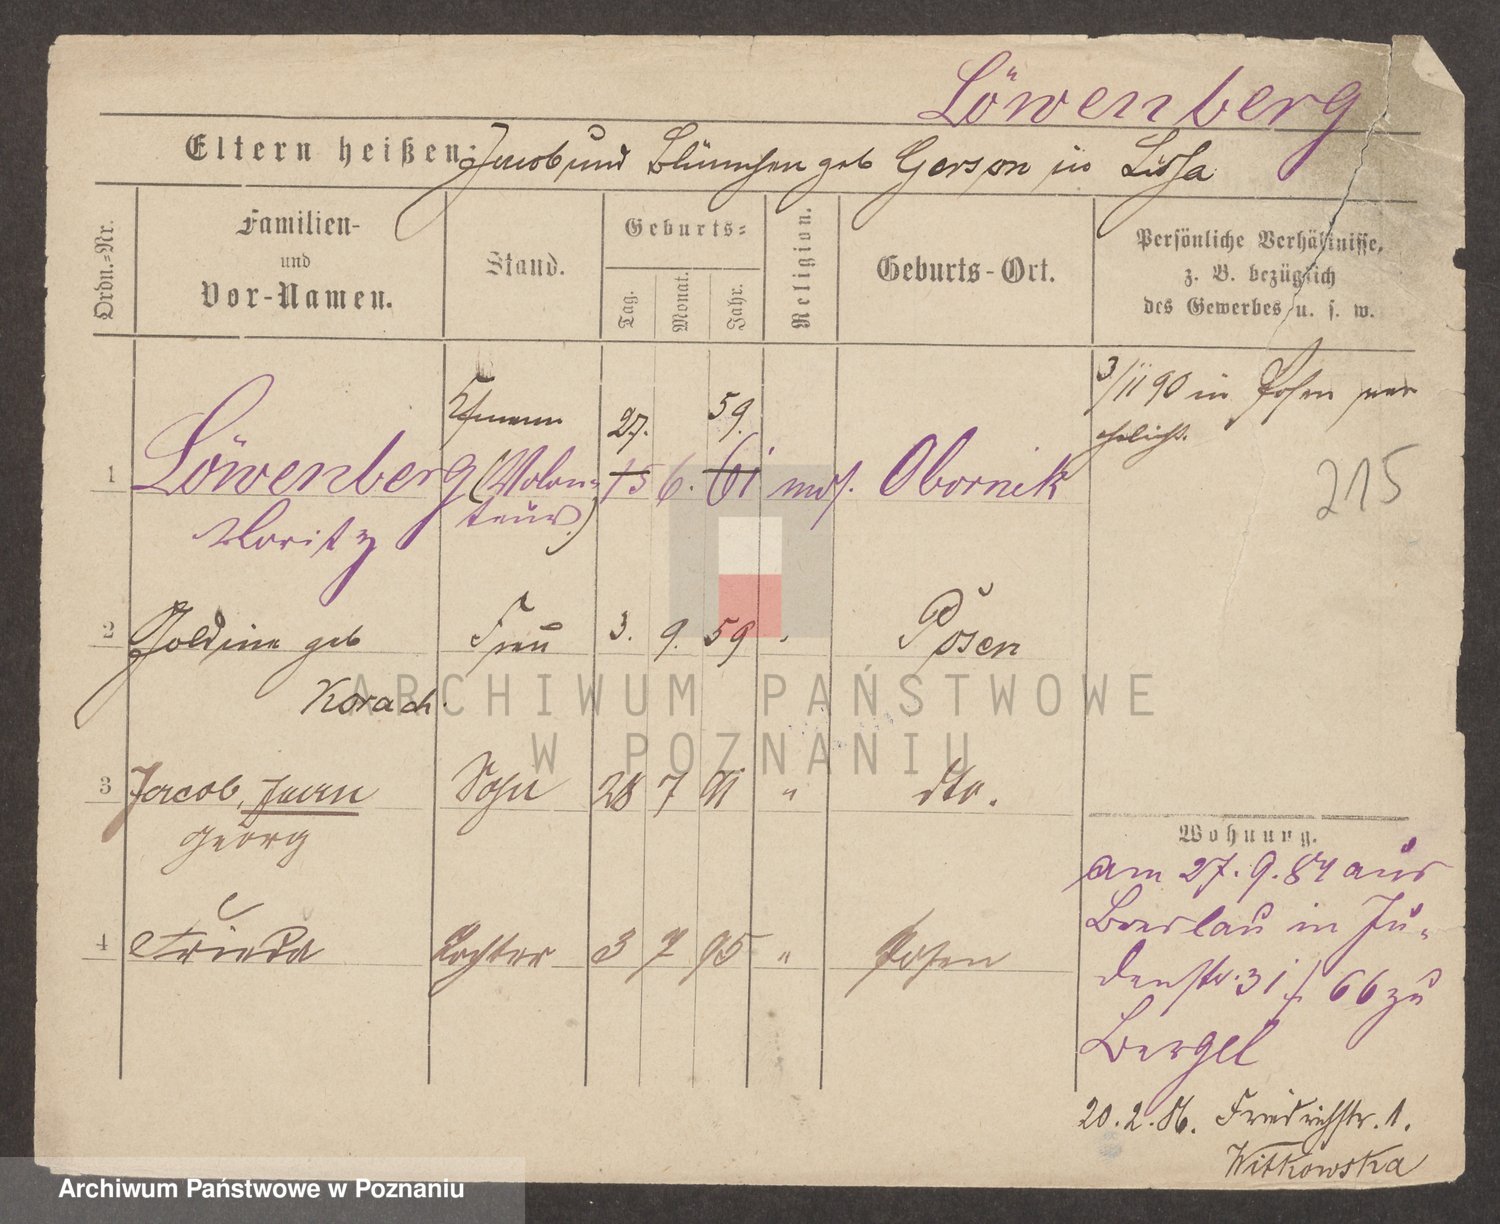 Löwenberg
Eltern heißen: Jacob und Blümchen geb Gerson in Lissa
Ordn.=Nr.
Familien-
und
Vor-Namen.
Stand.
Geburts=
Tag.
Monat.
Jahr.
Religion.
Geburts-Ort.
Persönliche Verhältnisse,
z. B. bezüglich
des Gewerbes u. s. w.
1 Löwenberg
Moritz
Kfmann
(Volon=
teur)
27.
15 6. 59.
61 mos. Obornik
3/11 90 in Posen ver
ehelicht.
215
2 Goldine geb
Korach. Frau 3. 9. 59 " Posen
3 Jacob, Iwan
Georg Sohn 28 7 91 " dto.
4 Frieda Tochter 3 7 95 " Posen
Wohnung.
am 27.9.84 aus
Breslau in Ju=
denstr. 31 / 66 zu
Bergel
20.2.86. Friedrichstr. 1.
Witkowska
ARCHIWUM PAŃSTWOWE
W POZNANIU
Archiwum Państwowe w Poznaniu